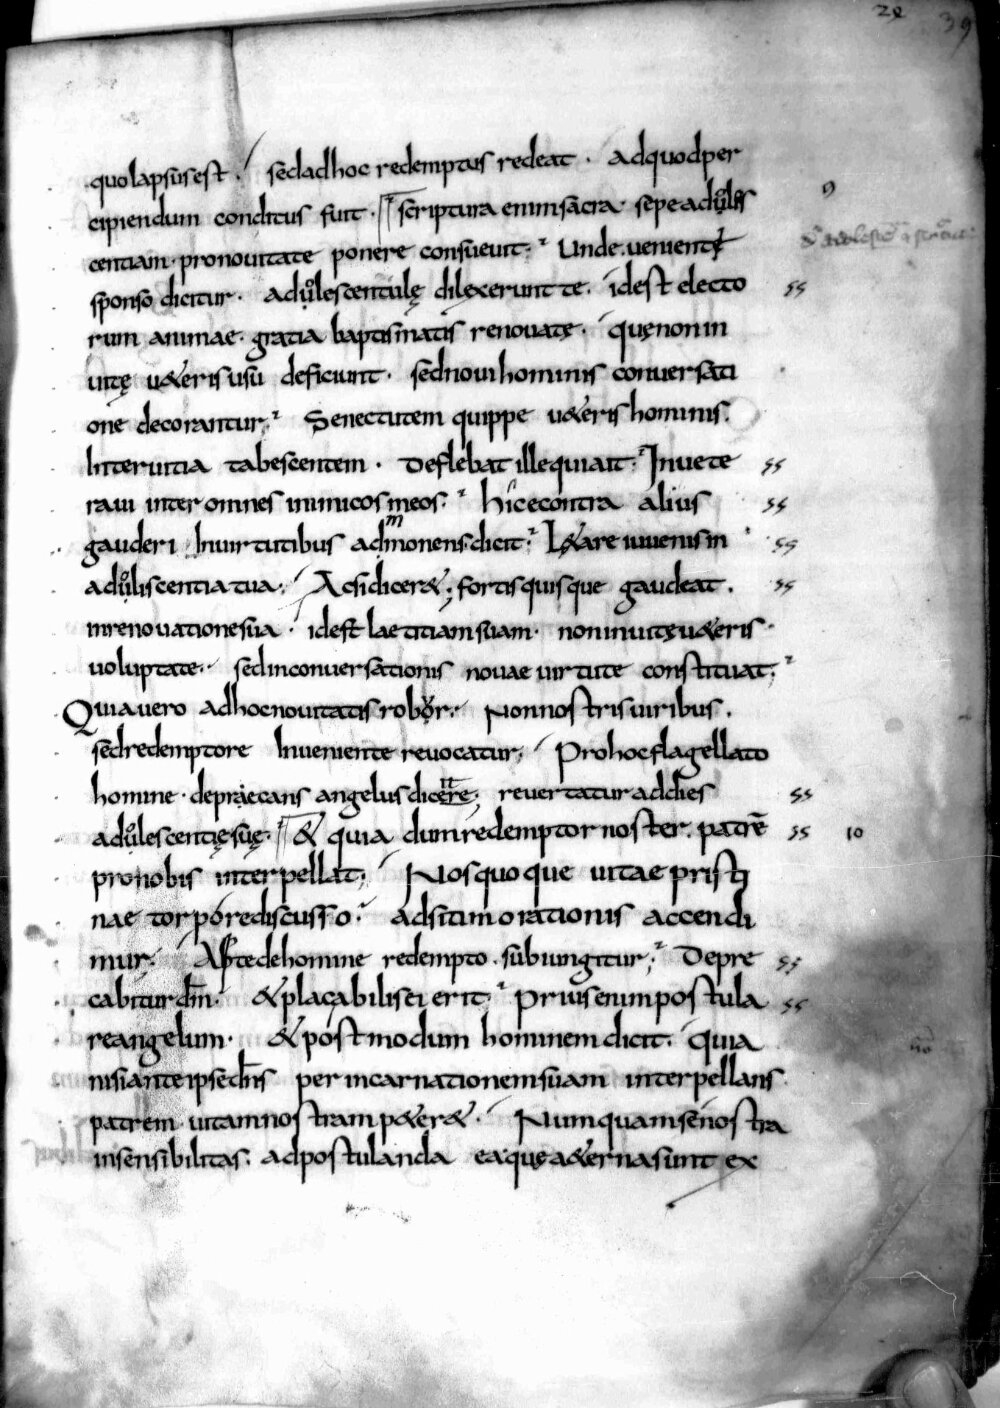 29 39
quo lapsus est. sed ad hoc redemptus redeat. ad quod per
cipiendum conditus fuit. scriptura enim sacra sepe adulis
9
centiam pronovitate ponere consuevit. Unde venienti
sponso dicitur. adulescentulę dilexerunt te. idest electo
rum animae gratia baptismatis renovatę. quę non in
vitę u&eris usu deficiunt. sed novi hominis conversati
one decorantur. Senectutem quippe u&eris hominis.
Inter vitia tabescentem. Deflebat ille qui ait. Invete
ravi inter omnes inimicos meos. hinc econtra alius
gauderi In virtutibus admonens. dicit. L&are iuvenis in
aduliscentia tua. Ac si dicer&; fortis quisque gaudeat.
in renovatione sua. idest laetitiam suam. non in vitę u&eris
voluptate. sed in conversationis novae virtute constituat;
Quia vero ad hoc novitatis robor. Non nostris viribus.
sed redemptore Inveniente revocatur; Pro hoc flagellato
homine depraecans angelus dicere; revertatur ad dies
adulescentię suę. & quia dum redemptor noster. patrē
10
pro nobis interpellat; Nos quoque vitae pristi
nae torpore discusso. ad sitim orationis accendi
mur. Apte de homine redempto subiungitur; Depre
cabitur dm̄. & placabilis ei erit. Prius enim postula
re angelum. & post modum hominem dicit. quia
nisi ante ipse dn̄s per incarnationem suam interpellans
patrem vitam nostram p&er&. Numquam se nostra
insensibilitas. ad postulanda ea quę a&erna sunt ex